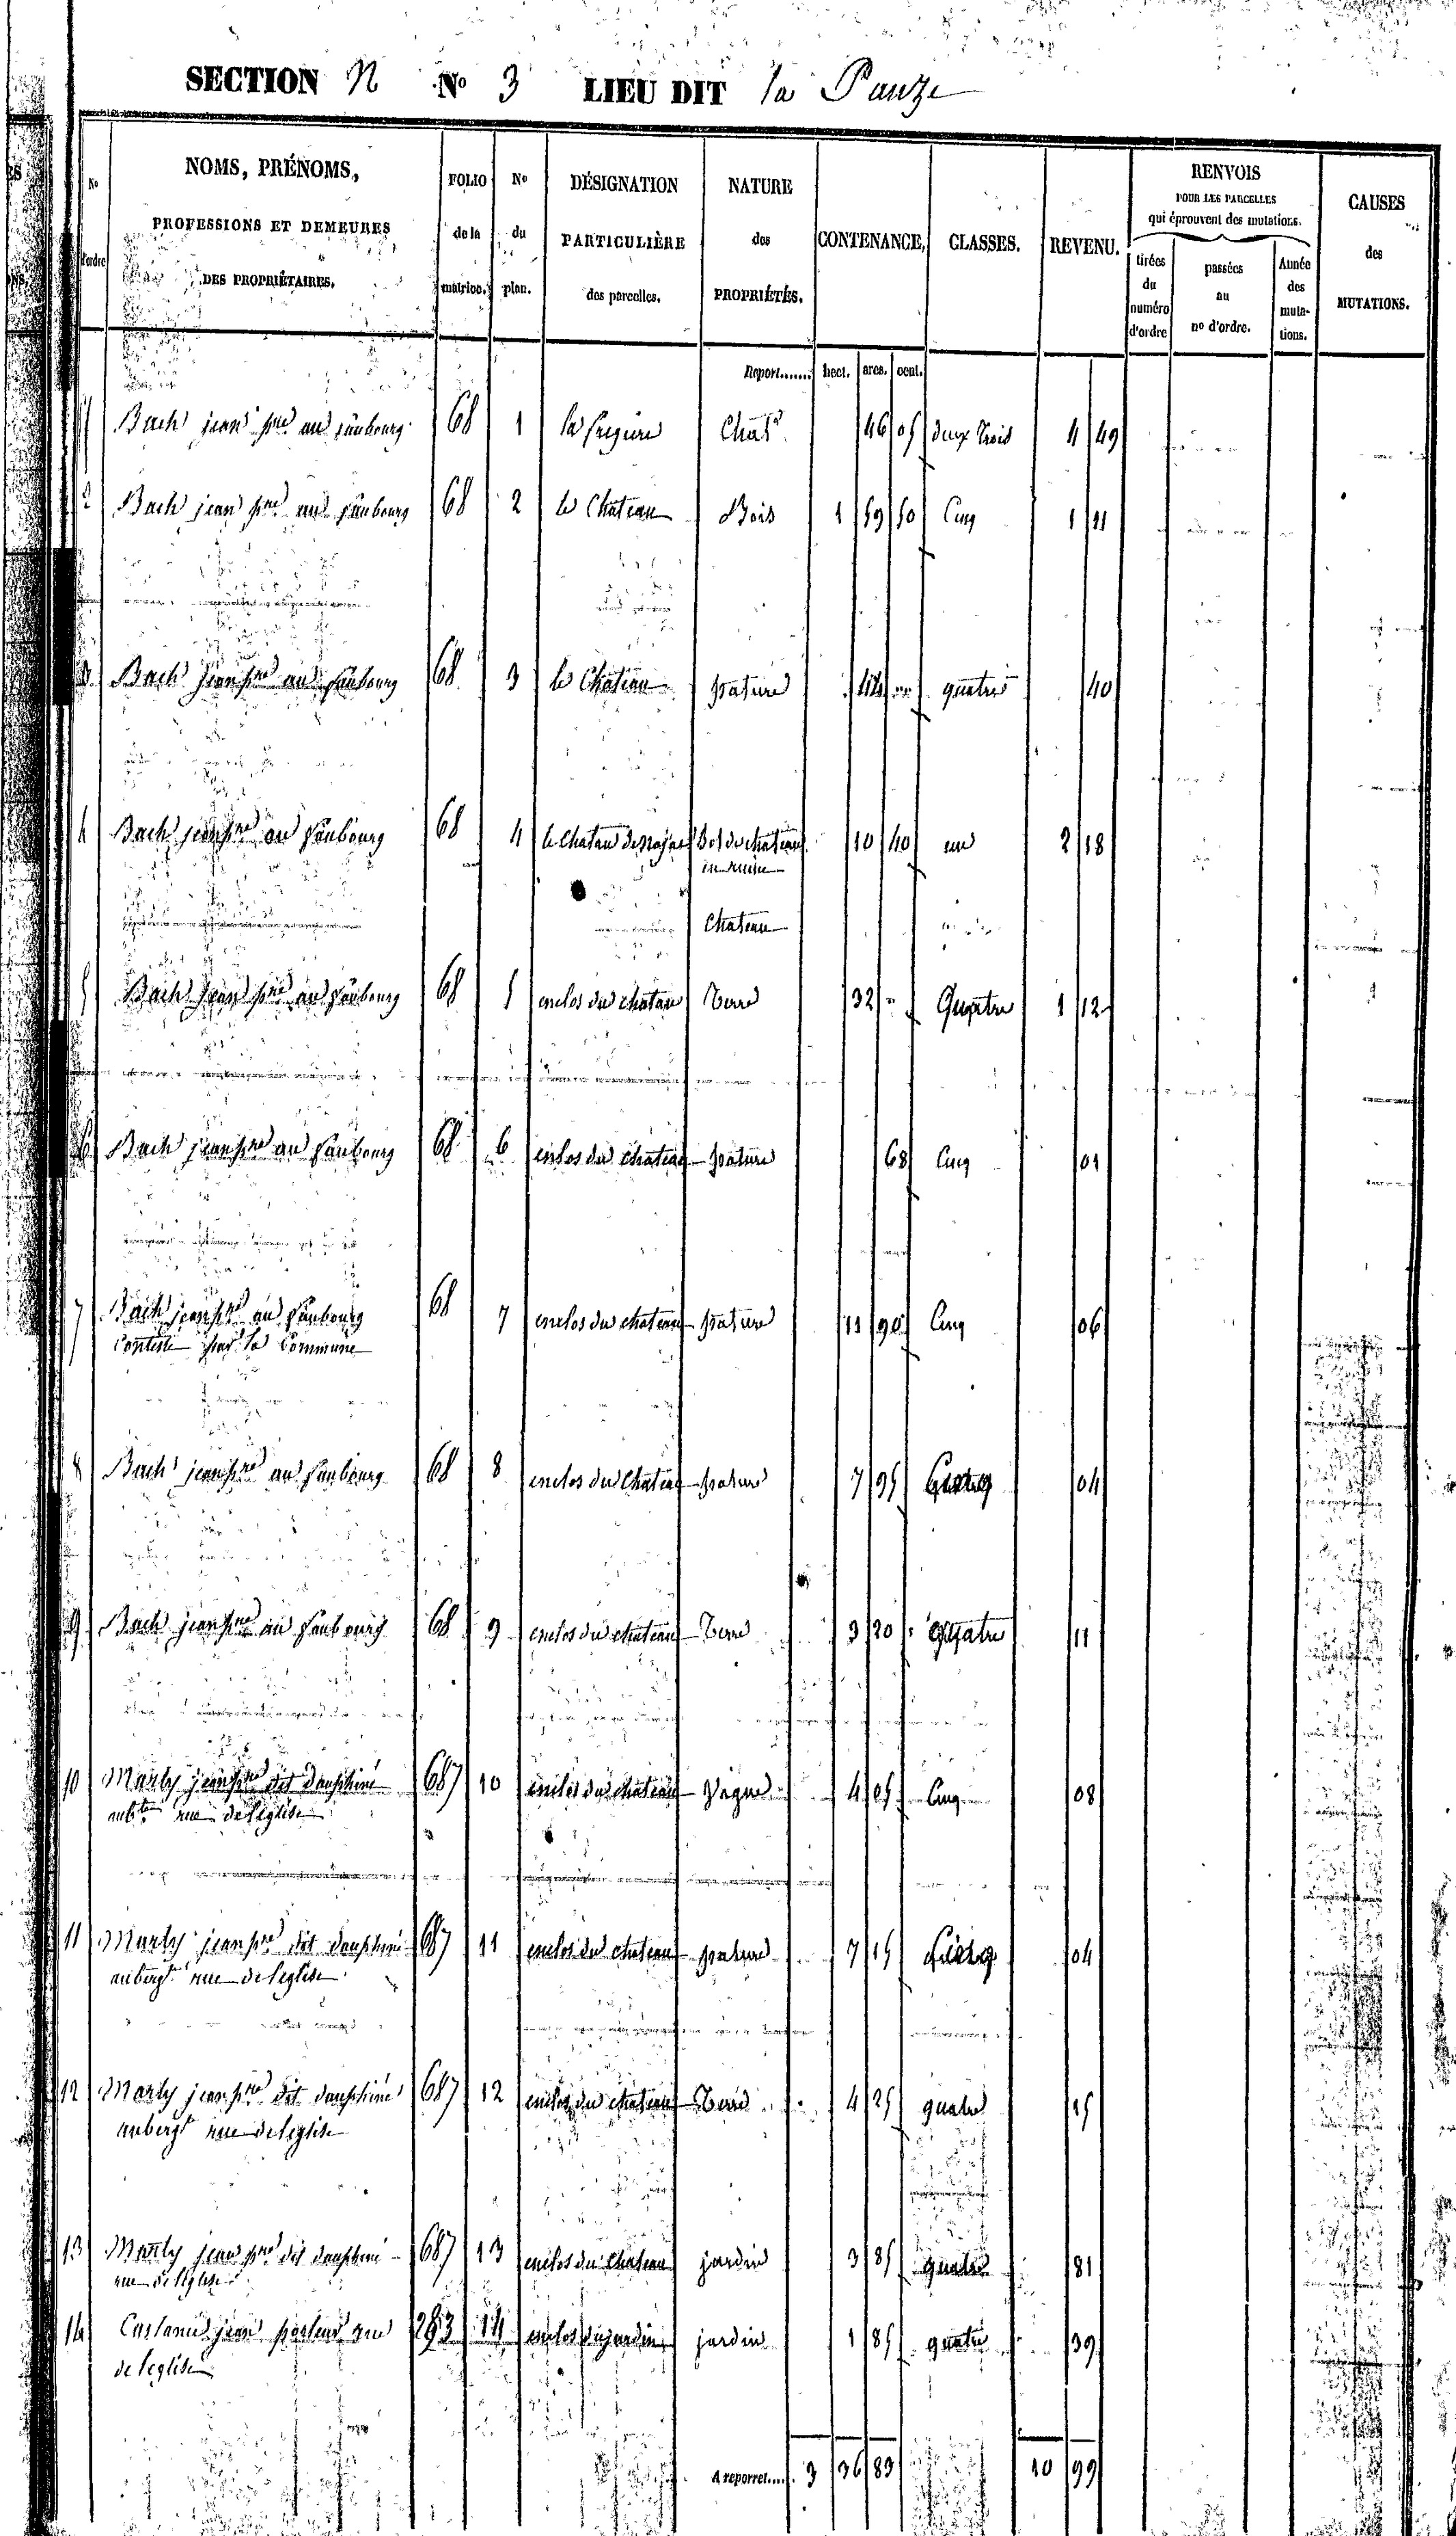 SECTION N No 3 LIEU DIT la Pauze
No d'ordre
NOMS, PRÉNOMS,
PROFESSIONS ET DEMEURES
DES PROPRIÉTAIRES.
FOLIO de la matrice.
No du plan.
DÉSIGNATION
PARTICULIÈRE
des parcelles.
NATURE
des
PROPRIÉTÉS.
CONTENANCE,
CLASSES.
REVENU.
RENVOIS
POUR LES PARCELLES
qui éprouvent des mutations.
tirées du numéro d'ordre
passées au no d'ordre.
Année des muta-tions.
CAUSES
des
MUTATIONS.
Report....... hect. ares. cent.
1 Bach jean pre au faubourg 68 1 Chatd 46 05 deux trois 4 49
2 Bach jean pre au faubourg 68 2 le Chateau Bois 1 59 50 Cinq 1 11
3 Bach jean pre au faubourg 68 3 le Chateau pature 44 " quatre 40
4 Bach jean pre au faubourg 68 4 le Chateau de Sol du chateau 10 40 une 2 18
en ruine
Chateau
5 Bach jean pre au faubourg 68 5 enclos du chateau Terre 32 " Quatre 1 12
6 Bach jean pre au faubourg 68 6 enclos du chateau pature 68 Cinq 01
7 Bach jean pre au faubourg 68 7 enclos du chateau pature 11 90 Cinq 06
Contesté par la Commune
8 Bach jean pre au faubourg 68 8 enclos du chateau pature 7 95 Cinq 04
9 Bach jean pre au faubourg 68 9 enclos du chateau Terre 3 20 Quatre 11
10 Marty jean pre dit dauphiné 687 10 enclos du chateau Vigne 4 05 Cinq 08
rue de l'église
11 Marty jean pre dit dauphiné 687 11 enclos du chateau pature 7 15 Cinq 04
aubergt rue de l'église
12 Marty jean pre dit dauphiné 687 12 enclos du chateau Terre 4 25 quatre 15
aubergt rue de l'église
13 Marty jean pre dit dauphiné 687 13 enclos du chateau jardin 3 85 quatre 81
rue de l'église
14 Castanié jean rue 283 14 enclos du jardin jardin 1 85 quatre 39
de l'église
A reporter.... 3 36 83 10 99